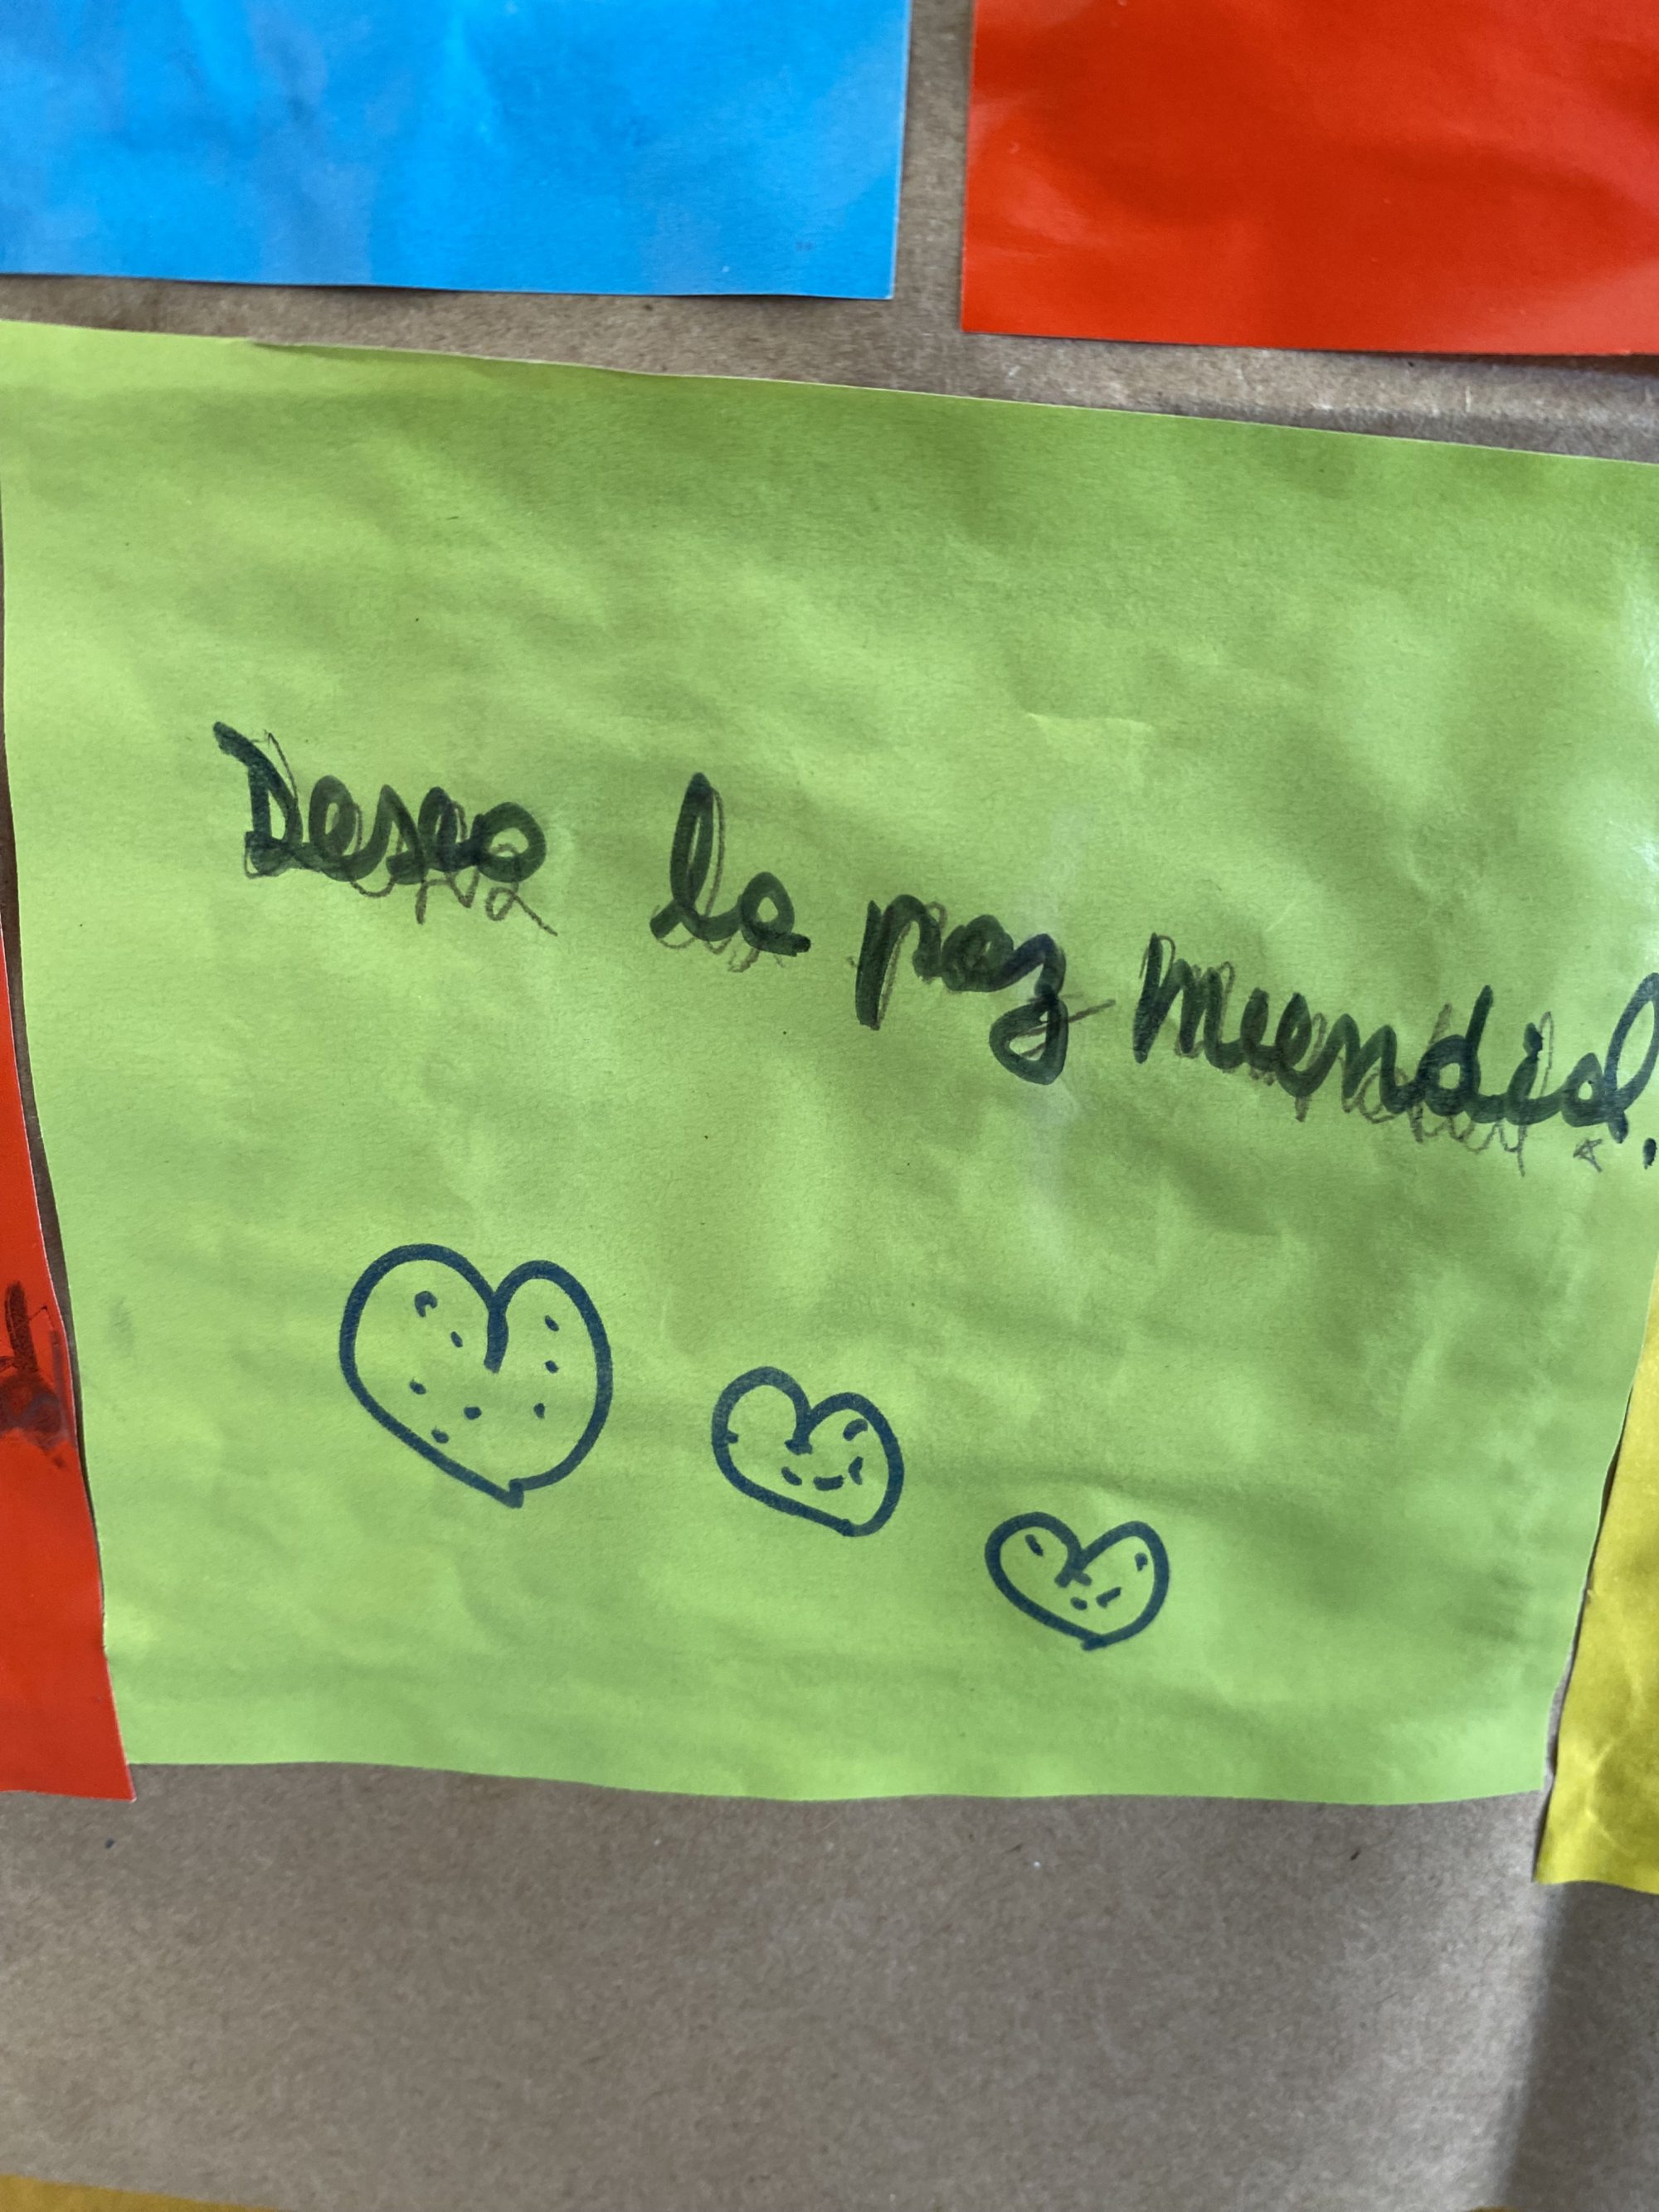 Deseo la paz mundial.